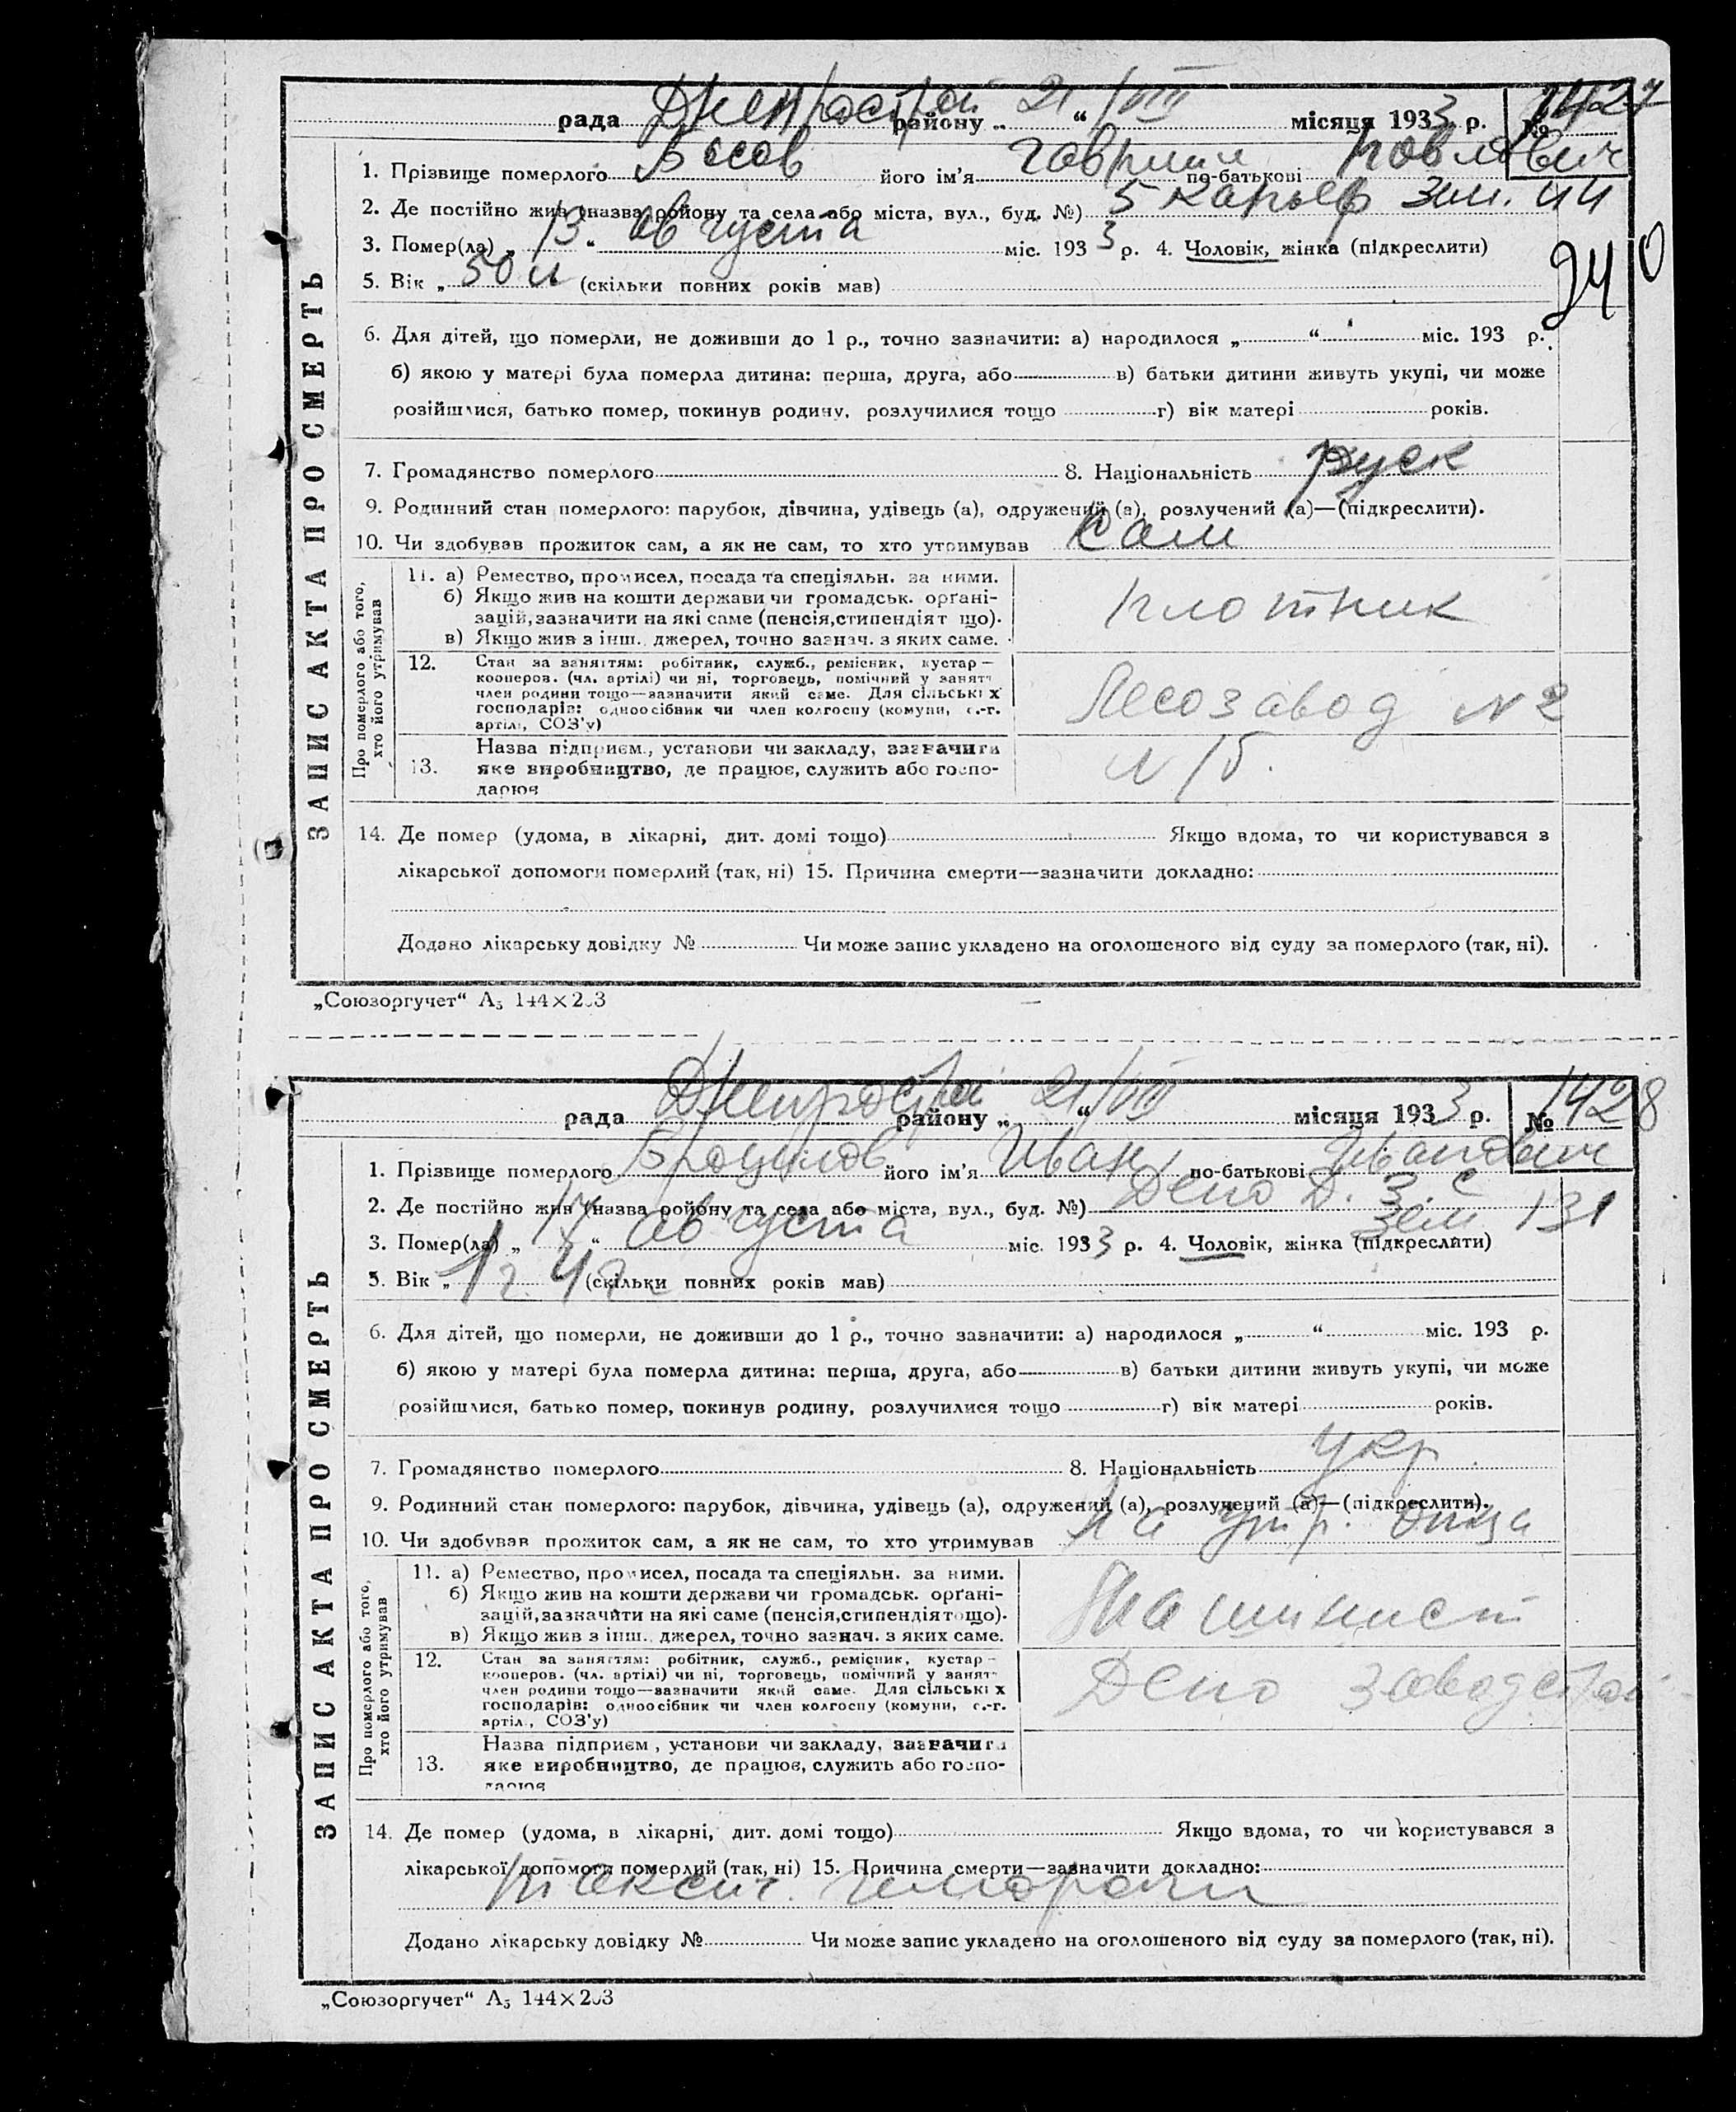 рада Днепрострой району „ 21 “ VIII місяця 1933 р. № 1427
1. Прізвище померлого Босов його ім'я Гавриил по-батькові Павлович
2. Де постійно жив (назва ройону та села або міста, вул., буд. №) 5 Карьер Зем. 44
3. Помер(ла) „ 13 “ августа міс. 1933 р. 4. Чоловік, жінка (підкреслити)
940
5. Вік „ 50 л (скільки повних років мав)
6. Для дітей, що померли, не доживши до 1 р., точно зазначити: а) народилося „ “ міс. 193 р.
б) якою у матері була померла дитина: перша, друга, або в) батьки дитини живуть укупі, чи може
розійшлися, батько помер, покинув родину, розлучилися тощо г) вік матері років.
7. Громадянство померлого 8. Національність Руск
9. Родинний стан померлого: парубок, дівчина, удівець (а), одружений (а), розлучений (а)—(підкреслити).
10. Чи здобував прожиток сам, а як не сам, то хто утримував Сам
ЗАПИС АКТА ПРО СМЕРТЬ
Про померлого або того, хто його утримував
11. а) Ремество, промисел, посада та спеціяльн. за ними.
б) Якщо жив на кошти держави чи громадськ. орґані-
зацій, зазначити на які саме (пенсія, стипендія т що).
в) Якщо жив з інш. джерел, точно зазнач. з яких саме.
плотник
12. Стан за заняттям: робітник, служб., ремісник, кустар—
кооперов. (чл. артілі) чи ні, торговець, помічний у занятт
член родини тощо—зазначити який саме. Для сільських
господарів: одноосібник чи член колгоспу (комуни, с.-г.
артілі, СОЗ'у)
Лесозавод № 2
13. Назва підприєм., установи чи закладу, зазначити
яке виробництво, де працює, служить або госпо-
дарює
14. Де помер (удома, в лікарні, дит. домі тощо) Якщо вдома, то чи користувався з
лікарської допомоги померлий (так, ні) 15. Причина смерти—зазначити докладно:
Додано лікарську довідку № Чи може запис укладено на оголошеного від суду за померлого (так, ні).
„Союзоргучет“ А5 144×203
рада Днепрострой району „ 21 “ VIII місяця 1933 р. № 1428
1. Прізвище померлого його ім'я Иван по-батькові Иванович
2. Де постійно жив (назва ройону та села або міста, вул., буд. №) Депо Д. З. С
Зем 131
3. Помер(ла) „ “ августа міс. 1933 р. 4. Чоловік, жінка (підкреслити)
5. Вік „ 1 г. (скільки повних років мав)
6. Для дітей, що померли, не доживши до 1 р., точно зазначити: а) народилося „ “ міс. 193 р.
б) якою у матері була померла дитина: перша, друга, або в) батьки дитини живуть укупі, чи може
розійшлися, батько помер, покинув родину, розлучилися тощо г) вік матері років.
7. Громадянство померлого 8. Національність Укр
9. Родинний стан померлого: парубок, дівчина, удівець (а), одружений (а), розлучений (а)—(підкреслити).
10. Чи здобував прожиток сам, а як не сам, то хто утримував На утр. отца
ЗАПИС АКТА ПРО СМЕРТЬ
Про померлого або того, хто його утримував
11. а) Ремество, промисел, посада та спеціяльн. за ними.
б) Якщо жив на кошти держави чи громадськ. орґані-
зацій, зазначити на які саме (пенсія, стипендія тощо).
в) Якщо жив з інш. джерел, точно зазнач. з яких саме.
Машинист
12. Стан за заняттям: робітник, служб., ремісник, кустар—
кооперов. (чл. артілі) чи ні, торговець, помічний у занятт
член родини тощо—зазначити який саме. Для сільських
господарів: одноосібник чи член колгоспу (комуни, с.-г.
артіл., СОЗ'у)
Депо Заводстрой
13. Назва підприєм., установи чи закладу, зазначити
яке виробництво, де працює, служить або госпо-
дарює
14. Де помер (удома, в лікарні, дит. домі тощо) Якщо вдома, то чи користувався з
лікарської допомоги померлий (так, ні) 15. Причина смерти—зазначити докладно:
токсич.
Додано лікарську довідку № Чи може запис укладено на оголошеного від суду за померлого (так, ні).
„Союзоргучет“ А5 144×203